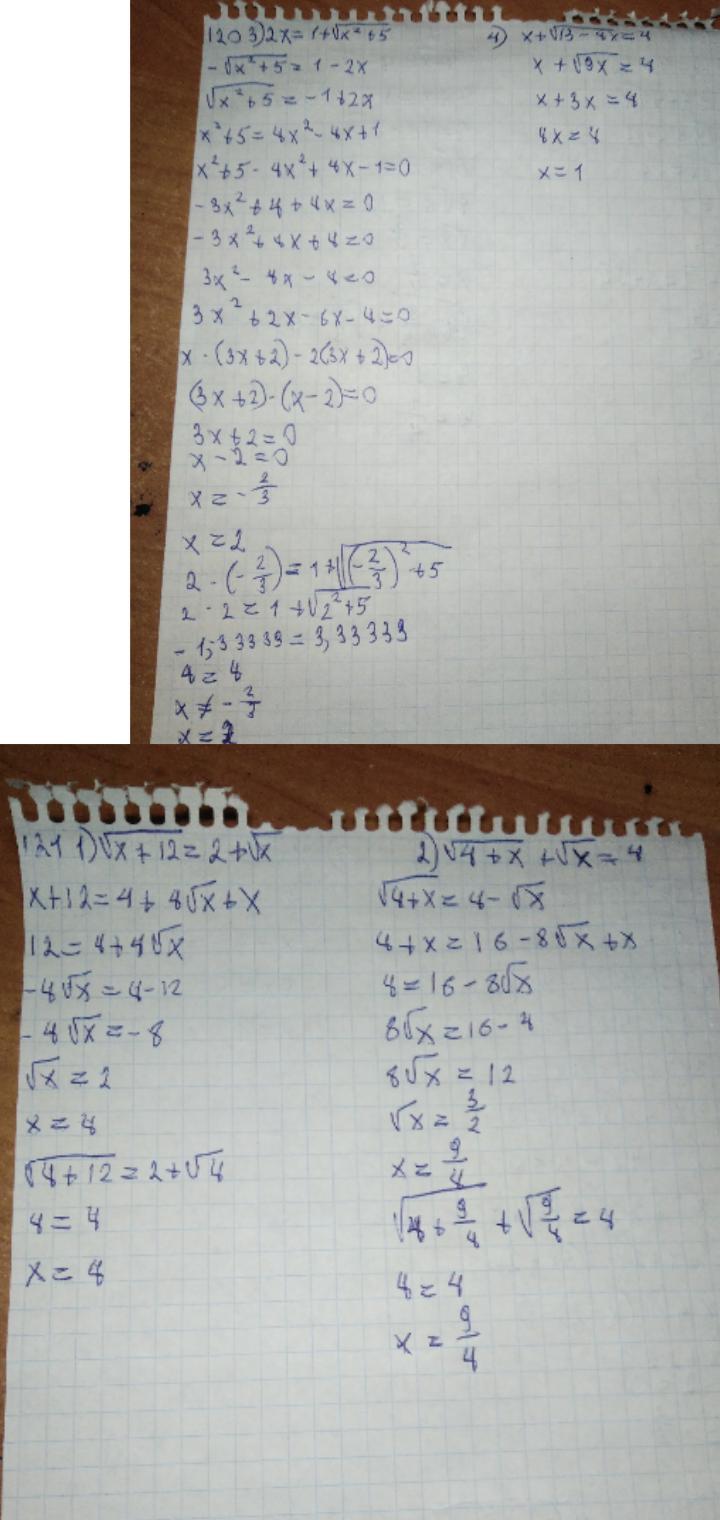 120 3) 2x = 1 + √(x² + 5)
-√(x² + 5) = 1 - 2x
√(x² + 5) = -1 + 2x
x² + 5 = 4x² - 4x + 1
x² + 5 - 4x² + 4x - 1 = 0
-3x² + 4 + 4x = 0
-3x² + 4x + 4 = 0
3x² - 4x - 4 = 0
3x² + 2x - 6x - 4 = 0
x · (3x + 2) - 2(3x + 2) = 0
(3x + 2) · (x - 2) = 0
3x + 2 = 0
x - 2 = 0
x = -2/3
x = 2
2 · (-2/3) = 1 + √((-2/3)² + 5)
2 · 2 = 1 + √(2² + 5)
-1,33333 = 3,33333
4 = 4
x ≠ -2/3
x = 2
4) x + √(13 - 4x) = 4
x + √(9x) = 4
x + 3x = 4
4x = 4
x = 1
121 1) √(x + 12) = 2 + √x
x + 12 = 4 + 4√x + x
12 = 4 + 4√x
-4√x = 4 - 12
-4√x = -8
√x = 2
x = 4
√(4 + 12) = 2 + √4
4 = 4
x = 4
2) √(4 + x) + √x = 4
√(4 + x) = 4 - √x
4 + x = 16 - 8√x + x
4 = 16 - 8√x
8√x = 16 - 4
8√x = 12
√x = 3/2
x = 9/4
√(4 + 9/4) + √(9/4) = 4
4 = 4
x = 9/4